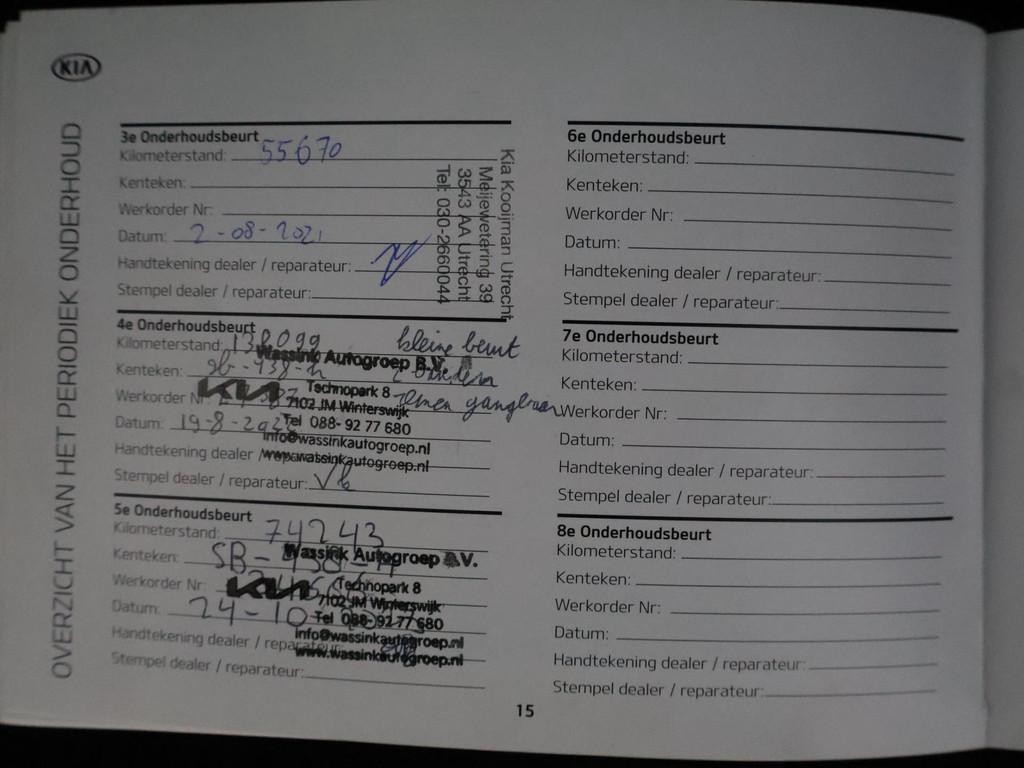 KIA
OVERZICHT VAN HET PERIODIEK ONDERHOUD
3e Onderhoudsbeurt
Kilometerstand: 55670
Kenteken:
Werkorder Nr:
Datum: 2-08-2021
Handtekening dealer / reparateur:
Stempel dealer / reparateur:
Kia Kooijman Utrecht
Meijewetering 39
3543 AA Utrecht
Tel: 030-2660044
4e Onderhoudsbeurt
Kilometerstand:
Kenteken:
Werkorder Nr
Datum: 19-8-
Handtekening dealer /
Stempel dealer / reparateur:
kleine beurt
Wassink Autogroep B.V.
KIA
Technopark 8
7102 JM Winterswijk
Tel 088- 92 77 680
info@wassinkautogroep.nl
www.wassinkautogroep.nl
5e Onderhoudsbeurt
Kilometerstand: 74243
Kenteken:
Werkorder Nr
Datum: 24-10
Handtekening dealer / reparateur:
Stempel dealer / reparateur:
Wassink Autogroep B.V.
KIA
Technopark 8
7102 JM Winterswijk
Tel 088- 92 77 680
info@wassinkautogroep.nl
www.wassinkautogroep.nl
6e Onderhoudsbeurt
Kilometerstand:
Kenteken:
Werkorder Nr:
Datum:
Handtekening dealer / reparateur:
Stempel dealer / reparateur:
7e Onderhoudsbeurt
Kilometerstand:
Kenteken:
Werkorder Nr:
Datum:
Handtekening dealer / reparateur:
Stempel dealer / reparateur:
8e Onderhoudsbeurt
Kilometerstand:
Kenteken:
Werkorder Nr:
Datum:
Handtekening dealer / reparateur:
Stempel dealer / reparateur:
15